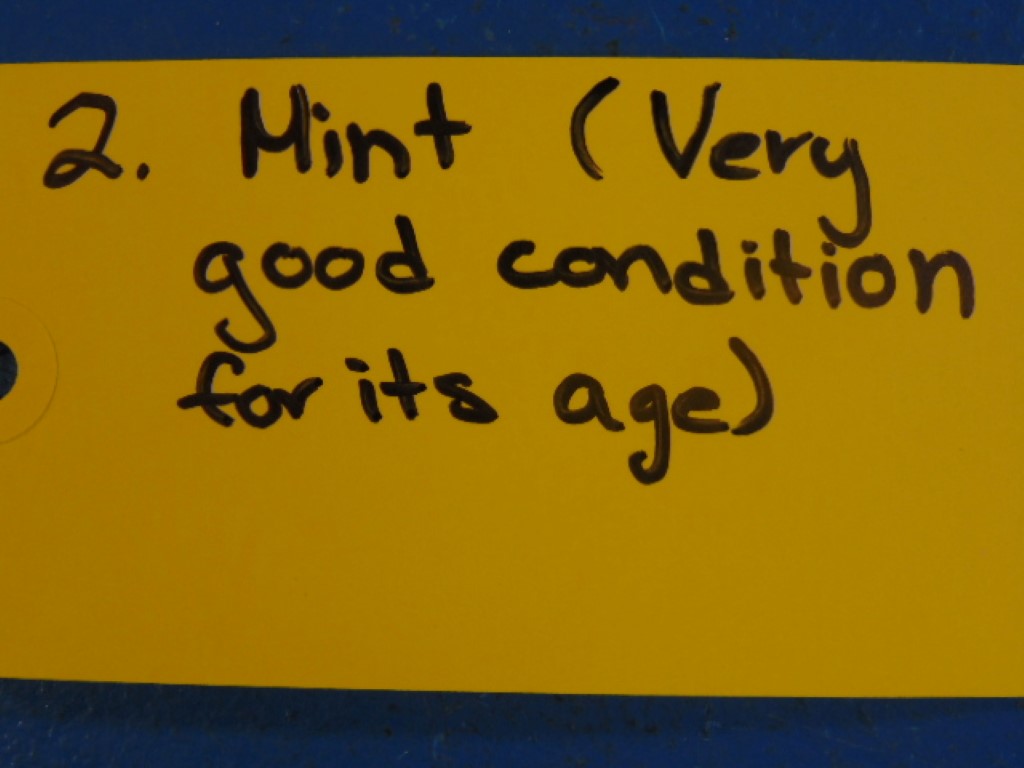 2. Mint (Very
good condition
for its age)